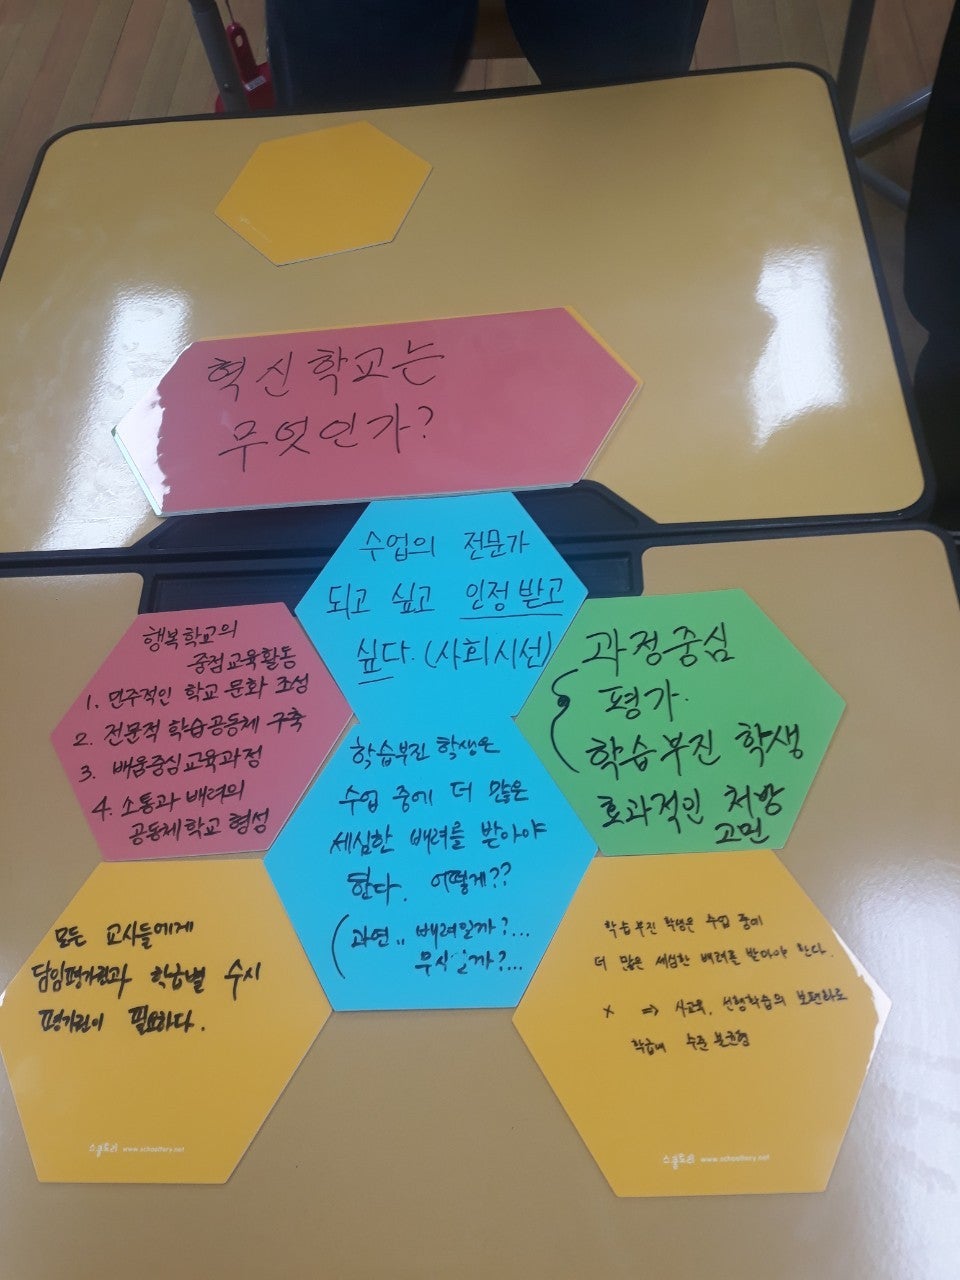 혁신학교는
무엇인가?
수업의 전문가
되고 싶고 인정받고
싶다. (사회시선)
행복학교의
중점교육활동
1. 민주적인 학교 문화 조성
2. 전문적 학습공동체 구축
3. 배움중심교육과정
4. 소통과 배려의
공동체학교 형성
과정중심
평가.
학습부진 학생
효과적인 처방
고민
학습부진 학생은
수업 중에 더 많은
세심한 배려를 받아야
한다. 어떻게??
(과연.. 배려일까?...
무식일까?...
모든 교사들에게
담임평가권과 학급별 수시
평가권이 필요하다.
스쿨토리 www.schooltory.net
학습부진 학생은 수업 중에
더 많은 세심한 배려를 받아야 한다.
x => 사교육, 선행학습의 보편화로
학급내 수준 불균형
스쿨토리 www.schooltory.net